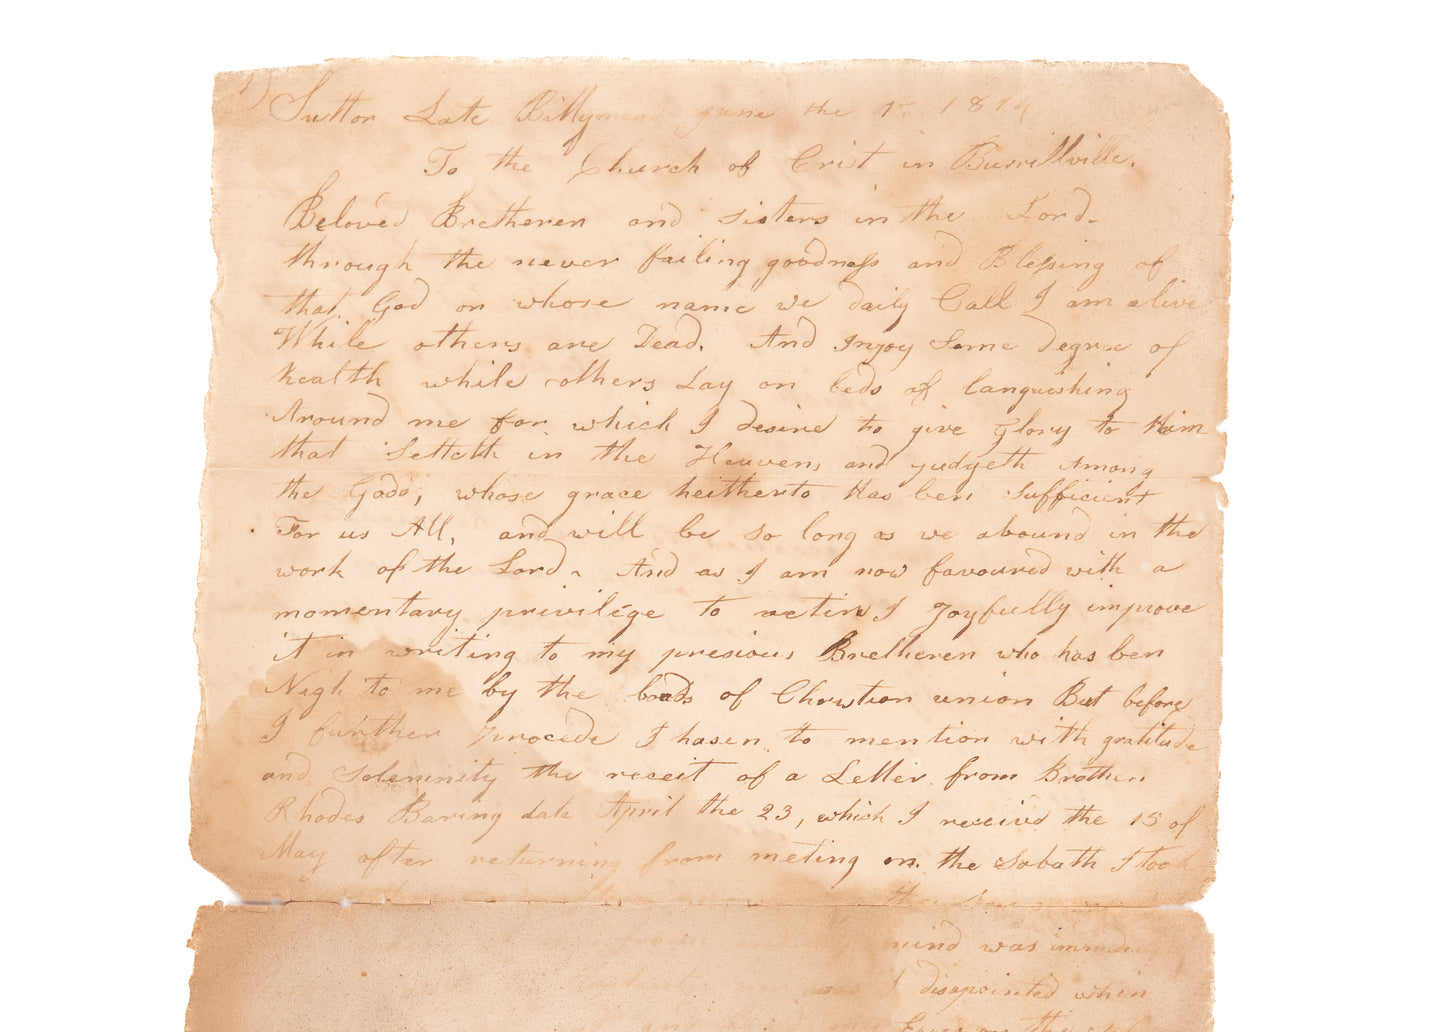 1)
Sutton Late Billymead june the 1st 1814
To the Church of Crist in Burrillville.
Beloved Bretheren and sisters in the Lord.
through the never failing goodness and Blessing of
that God on whose name we daily Call I am alive
While others are Dead. And Injoy Some degree of
health while others Lay on beds of languishing
Around me for which I desire to give glory to Him
that Setteth in the Heavens and judgeth Among
the Gods; whose grace heitherto has ben Sufficient
For us All, and will be so long as we abound in the
work of the Lord. And as I am now favoured with a
momentary privilege to I Joyfully improve
it in writing to my presious Bretheren who has ben
Nigh to me by the bonds of Christian union But before
I further procede I hasen to mention with gratitude
and Solemnity the receit of a Letter from Brother
Rhodes Baring date April the 23, which I receivd the 15 of
May after returning from meting on the Sabath I took
the
mind was
I disapointed when
on the